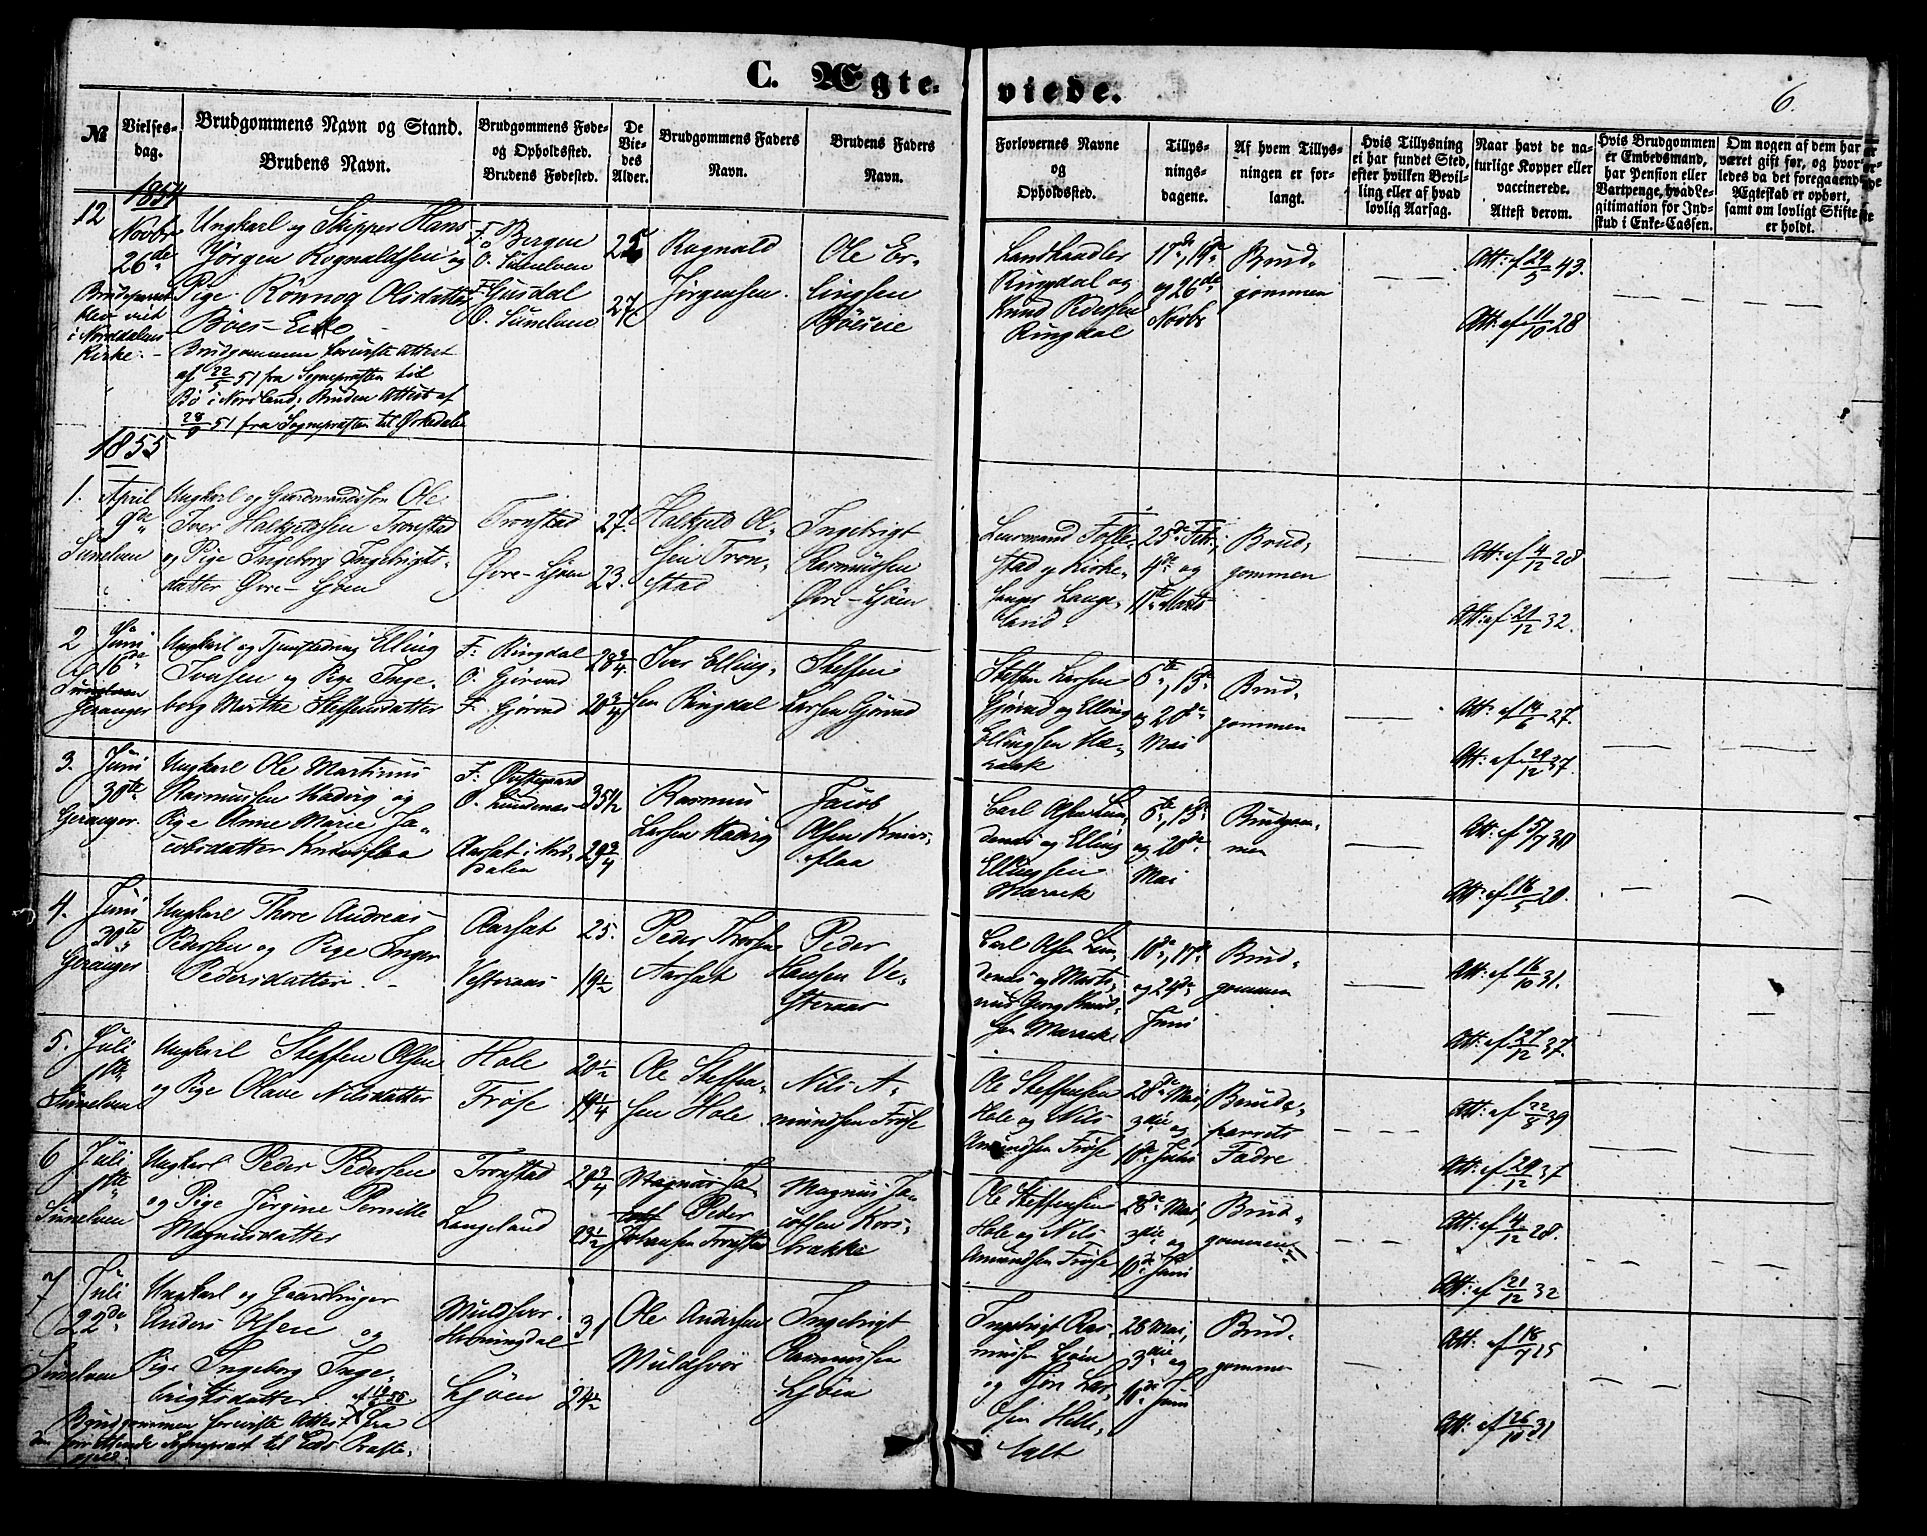 C. Ægte-
viede.
6.
№
Vielses-
dag.
Brudgommens Navn og Stand.
Brudens Navn.
Brudgommens Føde-
og Opholdssted.
Brudens Fødested.
De
Vie-
des
Alder.
Brudgommens Faders
Navn.
Brudens Faders
Navn.
Forlovernes Navne
og
Opholdssted.
Tillys-
nings-
dagene.
Af hvem Tillys-
ningen er for-
langt.
Hvis Tillysning
ei har fundet Sted,
efter hvilken Bevil-
ling eller af hvad
lovlig Aarsag.
Naar havt de na-
turlige Kopper eller
vaccinerede.
Attest derom.
Hvis Brudgommen
er Embedsmand,
har Pension eller
Vartpenge, hvad Le-
gitimation for Ind-
skud i Enke-Cassen.
Om nogen af dem har
været gift før, og hvor-
ledes da det foregaaende
Ægteskab er ophørt,
samt om lovligt Skifte
er holdt.
1854
12
Novbr
26de
Brudeparret
blev viet
i Norddalens
Kirke.
Ungkarl og Skipper Hans
Jørgen Rognaldsen og
Pige Rønnog Olsdatter
Bøes-Eie
Brudgommen foreviste Attest
af 22/5 51 fra Sognepræsten til
Bø i Nordland; Bruden Attest af
51 fra Sognepræsten til Ørkedalen
F. Bergen
O. Sunelven
O. Sunelven
25
27
Rognald
Jørgensen.
Ole Er-
lingsen
Bøeseie
Landhandler
Ringdal og
Knud Pedersen
Ringdal
og 26de
Novbr
Brud-
gommen
Att: af 24/5 43.
Att: af 11/10 28
1855
1.
April
9de
Sunelven
Ungkarl og Gaardmandssøn Ole
Iver Halkjeldsen Tronstad
og Pige Ingeborg Ingebrigt-
datter Øvre-Ljøen
Tronstad
Øvre-Ljøen
27.
23.
Halkjeld Ol-
sen Tron-
stad
Ingebrigt
Rasmussen
Øvre-Ljøen
Lensmand Folle-
stad og Kirke-
sanger Lange-
land.
25de Febr,
4de og
11te Marts
Brud-
gommen
Att: af 4/12 28
Att: af 21/12 32.
2
Juni
16de
Geranger
Ungkarl og Tjenestedreng Elling
Iversen og Pige Inge-
borg Marthe Steffensdatter
F: Ringdal
O: Gjørvad
F: Gjørvad
28 3/4
20 3/4
Iver Elling-
sen Ringdal
Steffen
Larsen Gjørvad
Steffen Larsen
Gjørvad og Elling
Ellingsen Ma-
raak
6te, 13de
og 20de
Mai
Brud-
gommen
Att: af 14/6 27.
Att: af 29/12 37.
3.
Juni
30te
Geranger.
Ungkarl Ole Martinus
Rasmussen Hadvig og
Pige Anne Marie Ja-
cobsdatter Knivsflaa
O. Lundenæs
Aarsat i Nord-
dalen
35 1/2
29 3/4
Rasmus
Larsen Hadvig
Jacob
Olsen Knivs-
flaa
Carl Olsen Lun-
denæs og Elling
Ellingsen
Maraak
6te, 13de
og 20de
Mai
Brudgom-
men
Att: af 5/7 30
Att: af 16/5 20.
4.
Juni
30te
Geranger
Ungkarl Thore Andreas
Pedersen og Pige Inger
Pedersdatter
Aarsat
Vesteraas
25.
19 1/2
Peder Thoresen
Aarsat
Peder
Hansen Ve-
steraas
Carl Olsen Lun-
denæs og Marti-
nus Georg Knud-
sen Maraak
10de, 17de
og 24de
Juni
Brud-
gommen
Att: af 16/10 31.
Att: af 27/12 37.
5.
Juli
1ste
Sunelven
Ungkarl Steffen Olsen
og Pige Olave Nilsdatter
Hole
Frøse
20 1/2
19 1/4
Ole Steffen-
sen Hole
Nils A-
mundsen Frøse
Ole Steffensen
Hole og Nils
Amundsen Frøse
28de Mai,
3die og
10de Juni
Brude-
parrets
Fædre
Att: af 22/3 39
Att: af 29/12 37
6
Juli
1ste
Sunelven
Ungkarl Peder Pedersen
og Pige Jørgine Pernille
Magnusdatter
Tronstad
Langeland
29 3/4
23 1/2
Magnus Ja-
Peder
Johansen Tronstad
Magnus Ja-
cobsen Kors-
brække
Ole Steffensen
Hole og Nils
Amundsen Frøse
28de Mai,
3die og
10de Juni
Brud-
gommen
Att: af 4/12 28.
Att: af 21/12 32
7
Juli
22de
Sunelven
Ungkarl og Gaardbruger
Anders Olsen og
Pige Ingeborg Inge-
brigtsdatter
Brudgommen foreviste Attest fra
Sognepræst til Eids Præste-
gjeld.
Muldsvor
Horningdal
Ljøen
31
24 1/2
Ole Andersen
Muldsvör
Ingebrigt
Rasmussen
Ljøen
Ingebrigt Ras-
mussen Ljøen
og Jon Lar-
sen Helle-
salt
28 Mai,
3die og
10de Juni
Brud-
gommen
Att: af 18/7 15
Att: af 26/10 31